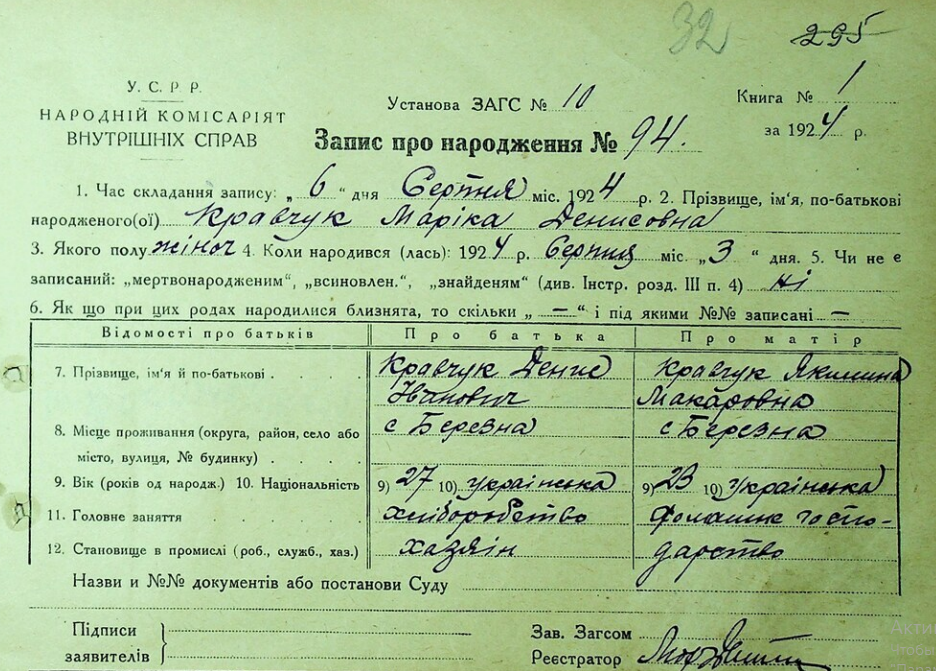 32 295
У. С. Р. Р.
НАРОДНІЙ КОМІСАРІЯТ
ВНУТРІШНІХ СПРАВ
Установа ЗАГС № 10
Книга № 1
за 1924 р.
Запис про народження № 94.
1. Час складання запису: „ 6 “ дня Серпня міс. 1924 р. 2. Прізвище, ім'я, по-батькові
народженого(ої) Кравчук Маріка Денисовна
3. Якого полу жіноч 4. Коли народився (лась): 1924 р. Серпня міс. „ 3 “ дня. 5. Чи не є
записаний: „мертвонародженим“, „всиновлен.“, „знайденям“ (див. Інстр. розд. III п. 4) ні
6. Як що при цих родах народилися близнята, то скільки „ — “ і під якими №№ записані —
Відомості про батьків Про батька Про матір
7. Прізвище, ім'я й по-батькові Кравчук Денис Кравчук Якилина
Іванович Макаровна
8. Місце проживання (округа, район, село або с Березна с Березна
місто, вулиця, № будинку)
9. Вік (років од народж.) 10. Національність 9) 27 10) українська 9) 23 10) Українська
11. Головне заняття хліборобство домашнє госпо-
12. Становище в промислі (роб., служб., хаз.) хазяін дарство
Назви и №№ документів або постанови Суду
Підписи Зав. Загсом
заявителів Реєстратор